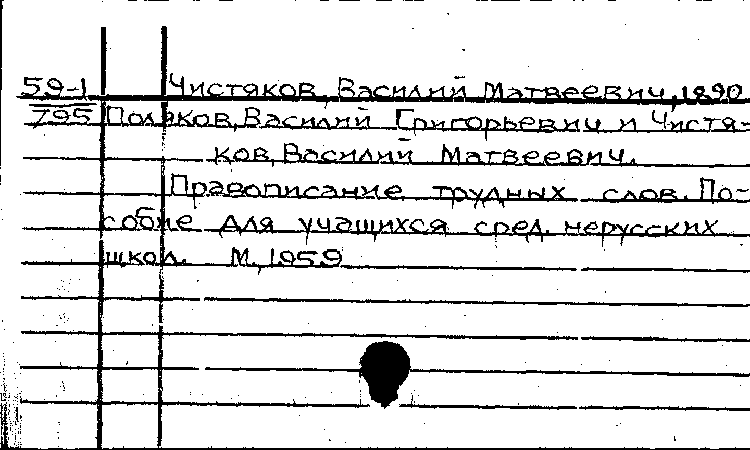 59-1 Чистяков, Василий Матвеевич, 1890
795 Поляков, Василий Григорьевич и Чистя-
ков, Василий Матвеевич.
Правописание трудных слов. По-
собие для учащихся сред. нерусских
школ. М., 1959